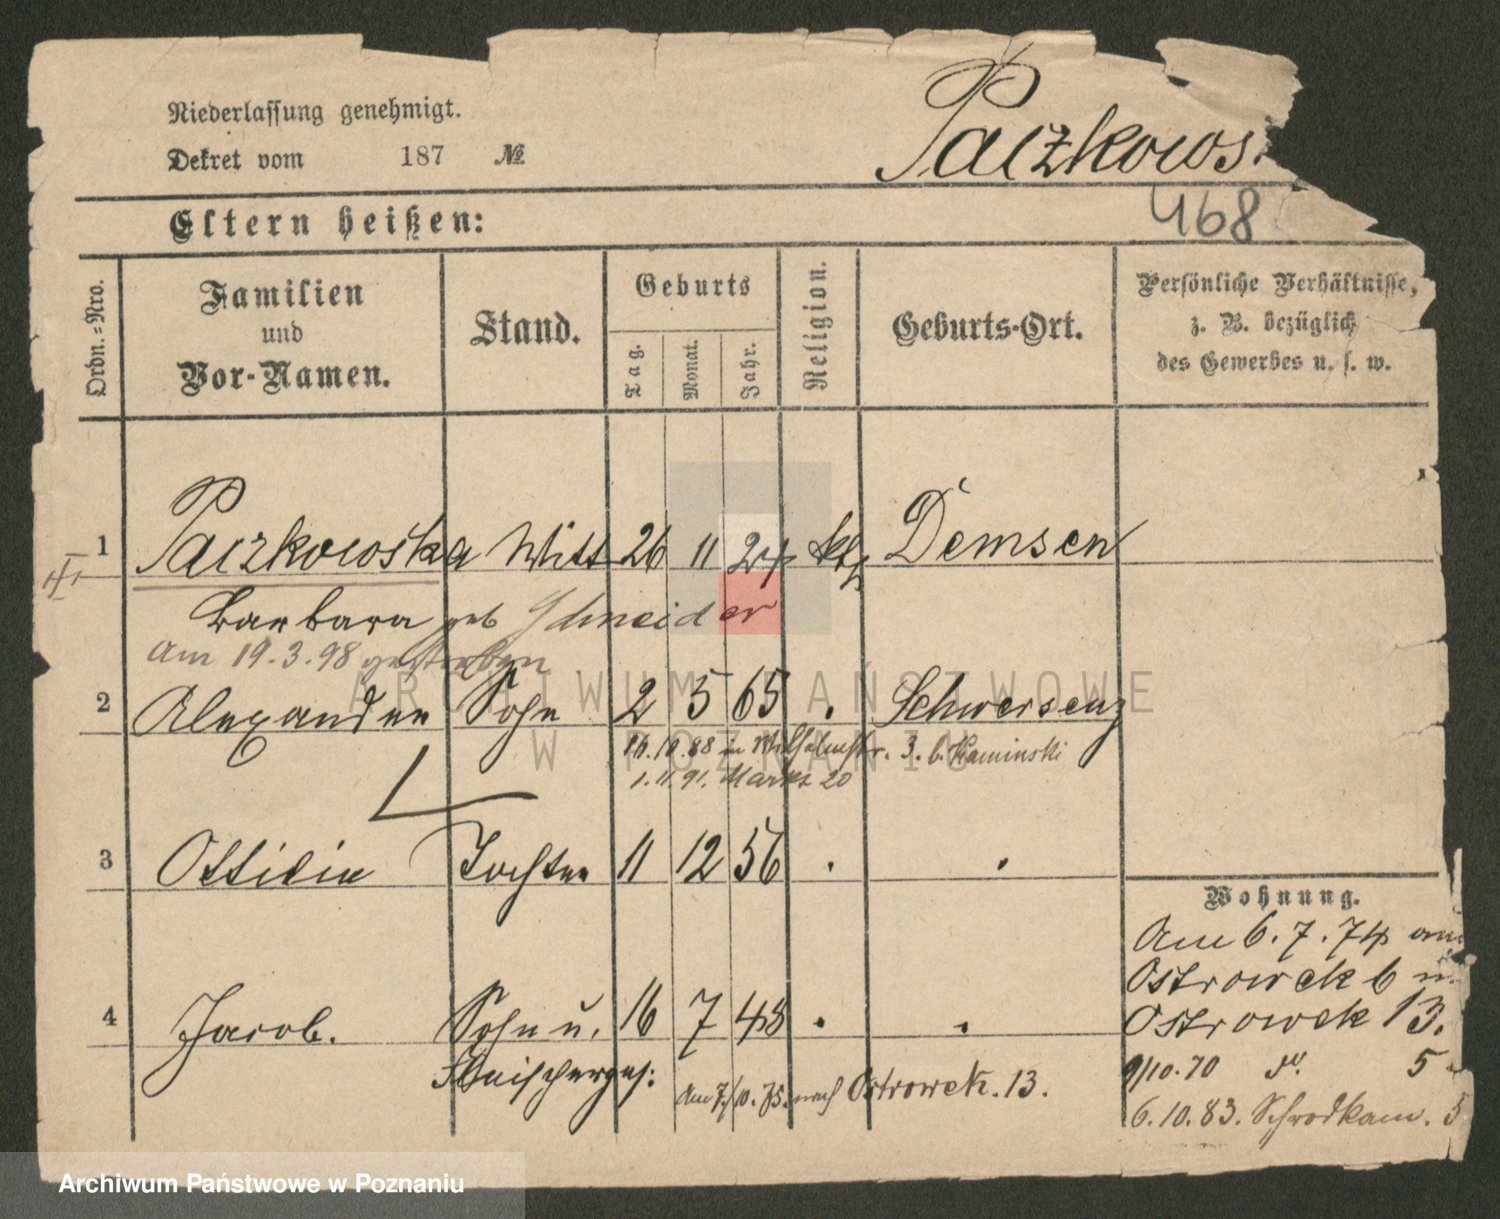 Niederlassung genehmigt.
Dekret vom 187 №
Paczkows
468
Eltern heißen:
Ordn.=Nro.
Familien
und
Vor-Namen.
Stand.
Geburts
Tag.
Monat.
Jahr.
Religion.
Geburts-Ort.
Persönliche Verhältnisse,
z. B. bezüglich
des Gewerbes u. s. w.
1 Paczkowska Witt 26 11 24 kth Demsen
Barbara geb Schneider
Am 19.3.98 gestorben
2 Alexander Sohn 2 5 65 . Schwersenz
16.10.88 in Wilhelmstr. 3. b. Kaminski
1.11.91. Markt 20
3 Ottilie Tochter 11 12 56 . .
4 Jacob. Sohn u. 16 7 48 . .
Fleischerges:
Am 7/10.75. nach Ostrowek. 13.
Wohnung.
Am 6.7.74 am
Ostrowek 6 n.
Ostrowek 13.
9/10.70 5
6.10.83. Schrodkam. 5
ARCHIWUM PAŃSTWOWE
W POZNANIU
Archiwum Państwowe w Poznaniu